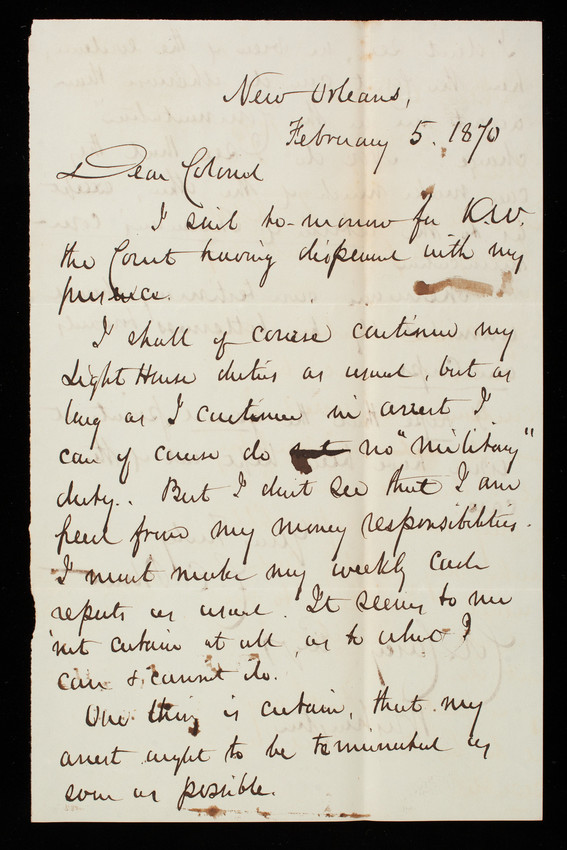 New Orleans,
February 5. 1870
Dear Colonel
I sail to-morrow for K.W.
the Court having dispensed with my
presence.
I shall of course continue my
Light House duties as usual, but as
long as I continue in arrest I
can of course do no "military"
duty. But I don't see that I am
freed from my money responsibilities.
I must make my weekly cash
reports as usual. It seems to me
not certain at all, as to what I
can & cannot do.
One thing is certain, that my
arrest ought to be terminated as
soon as possible.